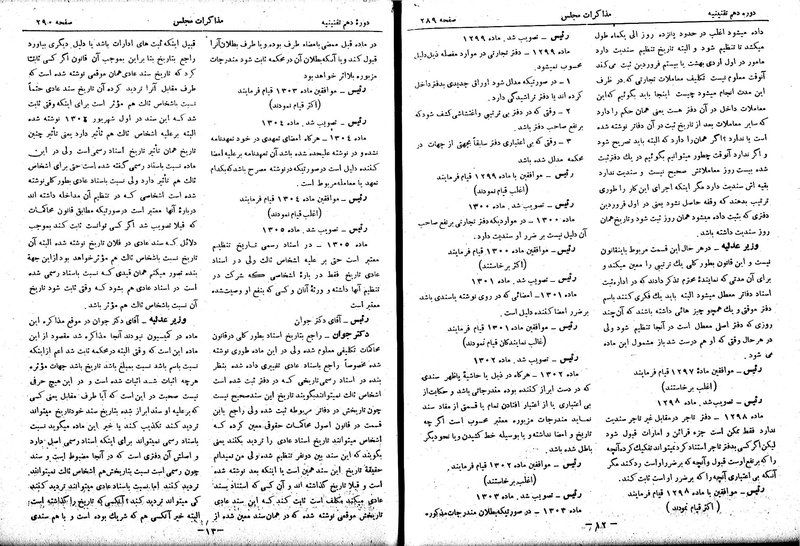 دوره دهم تقنینیه
مذاکرات مجلس
صفحه ۲۸۹
داده میشود اغلب در حدود پانزده روز الی یکماه طول
میکشد تا تنظیم شود و البته تاریخ تنظیم سندیت دارد
مأمور در اول اردی بهشت یا بیستم فروردین ثبت می‌کند
آنوقت معلوم نیست تکلیف معاملات تجارتی که در ظرف
این مدت انجام میشود چیست اینجا باید بگوئیم که این
معاملات داخل در آن دفتر هست یعنی همان حکم را دارد
که سایر معاملات بعد از تاریخ ثبت در آن دفاتر نوشته شده
است یا ندارد؟ اگر همان را دارد که البته باید تصریح شود
و اگر ندارد آنوقت چطور میتوانیم بگوئیم در یك دفتر ثبت
شده بیست روز معاملاتش صحیح نیست و سندیت ندارد
بقیه اش سندیت دارد مگر اینکه اجرای این کار را طوری
ترتیب بدهند که وقفه حاصل نشود یعنی در اول فروردین
دفتری که بثبت داده میشود همان روز ثبت شود و تاریخ همان
روز سندیت داشته باشد.
وزیر عدلیه - در هر حال این قسمت مربوط باینقانون
نیست و این قانون بطور کلی یك ترتیبی را معین میکند و
برای آن مدتی که نمایندهٔ محترم تذکر دادند که در ادارهٔ ثبت
اسناد دفاتر معطل میشود البته باید یك فکری کنند باسم
دفتر موقتی و یك همچو چیز هائی داشته باشند که آن چند
روزی که دفتر اصلی معطل است در آنجا تنظیم شود ولی
در هر حال وقتی که او هم درست شد باز مشمول این ماده
می شود.
رئیس - موافقین با ماده ۱۲۹۷ قیام فرمایند
(اغلب برخاستند)
رئیس - تصویب شد. ماده ۱۲۹۸
ماده ۱۲۹۸ - دفتر تاجر در مقابل غیر تاجر سندیت
ندارد فقط ممکن است جزء قرائن و امارات قبول شود
لیکن اگر کسی بدفتر تاجر استناد کرد نمیتواند تفکیك کرده آنچه
را که بر نفع او است قبول و آنچه که بر ضرر او است رد کند مگر
آنکه بی اعتباری آنچه را که بر ضرر او است ثابت کند.
رئیس - موافقین با ماده ۱۲۹۸ قیام فرمایند
(اکثر قیام نمودند)
رئیس - تصویب شد. ماده ۱۲۹۹
ماده ۱۲۹۹ - دفتر تجارتی در موارد مفصله ذیل دلیل
محسوب نمیشود.
۱ - در صورتیکه مدلل شود اوراق جدیدی بدفتر داخل
کرده اند یا دفتر تراشیدگی دارد.
۲ - وقتی که در دفتر بی ترتیبی و اغتشاشی کشف شود که
بر نفع صاحب دفتر باشد.
۳ - وقتی که بی اعتباری دفتر سابقاً بجهتی از جهات در
محکمه مدلل شده باشد
رئیس - موافقین با ماده ۱۲۹۹ قیام فرمایند
(اغلب قیام نمودند)
رئیس - تصویب شد. ماده ۱۳۰۰
ماده ۱۳۰۰ - در مواردیکه دفتر تجارتی بر نفع صاحب
آن دلیل نیست بر ضرر او سندیت دارد.
رئیس - موافقین ماده ۱۳۰۰ قیام فرمایند
(اکثر برخاستند)
رئیس - تصویب شد. ماده ۱۳۰۱
ماده ۱۳۰۱ - امضائی که در روی نوشته یاسندی باشد
بر ضرر امضا کننده دلیل است.
رئیس - موافقین با ماده ۱۳۰۱ قیام فرمایند
(غالب نمایندگان قیام نمودند)
رئیس - تصویب شد. ماده ۱۳۰۲
ماده ۱۳۰۲ - هر گاه در ذیل یا حاشیهٔ یاظهر سندی
که در دست ابراز کننده بوده مندرجاتی باشد و حکایت از
بی اعتباری یا از اعتبار افتادن تمام یا قسمتی از مفاد سند
نماید مندرجات مزبوره معتبر محسوب است اگر چه
تاریخ و امضا نداشته و یا بوسیله خط کشیدن و یا نحو دیگر
باطل شده باشد.
رئیس - موافقین با ماده ۱۳۰۲ قیام فرمایند
(اغلب برخاستند)
رئیس - تصویب شد. ماده ۱۳۰۳
ماده ۱۳۰۳ - در صورتیکه بطلان مندرجات مذکوره
- ۸۲ -
دوره دهم تقنینیه
مذاکرات مجلس
صفحه ۲۹۰
در ماده قبل ممضی بامضاء طرف بوده و یا طرف بطلان آنرا
قبول کند و یا آنکه بطلان آن در محکمه ثابت شود مندرجات
مزبوره بلااثر خواهد بود
رئیس - موافقین ماده ۱۳۰۳ قیام فرمایند
(اکثر قیام نمودند)
رئیس - تصویب شد. ماده ۱۳۰۴
ماده ۱۳۰۴ - هرگاه امضای تعهدی در خود تعهدنامه
نشده و در نوشته علیحده شده باشد آن تعهدنامه بر علیه امضا
کننده دلیل است در صورتیکه در نوشته مصرح باشد که بکدام
تعهد یا معامله مربوط است.
رئیس - موافقین با ماده ۱۳۰۴ قیام فرمایند
(اغلب قیام نمودند)
رئیس - تصویب شد. ماده ۱۳۰۵
ماده ۱۳۰۵ - در اسناد رسمی تاریخ تنظیم
معتبر است حتی بر علیه اشخاص ثالث ولی در اسناد
عادی تاریخ فقط در بارهٔ اشخاصی که شرکت در
تنظیم آنها داشته و ورثهٔ آنان و کسی که بنفع او وصیت شده
معتبر است
رئیس - آقای دکتر جوان
دکتر جوان - راجع بتاریخ اسناد بطور کلی در قانون
محاکمات تکلیفی معلوم شده ولی در این ماده طوری نوشته
شده مخصوصاً راجع باسناد عادی تغییری داده شده بنظر
بنده در اسناد رسمی تاریخی که در دفتر ثبت شده است
اشخاص ثالث نمیتوانند بگویند تاریخ این سند صحیح نیست
چون تاریخش در دفاتر مربوطه ثبت شده ولی راجع باین
قسمت در قانون اصول محاکمات حقوقی معین کرده که
اشخاص میتوانند تاریخ اسناد عادی را تردید بکنند یعنی
بگویند که این سند بین دو نفر تنظیم شده و لی من نمیدانم
حقیقة تاریخ این سند همین است یا اینکه بعد نوشته شده
است و قبلا تاریخ گذاشته اند و آن کسی که استناد بسند
عادی میکند مکلف است ثابت کند که این سند عادی
تاریخش موقعی نوشته شده که در همان سند معین شده از
قبیل اینکه ثبت های ادارات باشد یا دلیل دیگری بیاورد
راجع بتاریخ بنا براین بموجب آن قانون اگر کسی ثابت
کرد که تاریخ سند عادی همان موقعی نوشته شده است که
طرف مقابل آنرا تردید کرده آن تاریخ سند عادی حتماً
نسبت باشخاص ثالث هم مؤثر است برای اینکه وقتی ثابت
شد که این سند در اول شهریور ۱۳۰۴ نوشته شده
البته بر علیه اشخاص ثالث هم تأثیر دارد یعنی تأثیر چنین
تاریخ همان تأثیر تاریخ اسناد رسمی است ولی در این
ماده نسبت باسناد رسمی گفته شده است حتی برای اشخاص
ثالث هم تأثیر دارد ولی نسبت باسناد عادی بطور کلی نوشته
شده است اشخاصی که در تنظیم آن مداخله داشته اند
دربارهٔ آنها معتبر است در صورتیکه مطابق قانون محاکمات
که قبلا تصویب شد اگر کسی توانست ثابت کند بموجب
دلائل که سند عادی در فلان تاریخ نوشته شده البته آن
تاریخ نسبت باشخاص ثالث هم مؤثر خواهد بود از این جهة
بنده تصور میکنم همان قیدی که نسبت باسناد رسمی شده
است در اسناد عادی هم بشود که وقتی ثابت شود تاریخ
آن نسبت باشخاص ثالث هم مؤثر باشد.
وزیر عدلیه - آقای دکتر جوان در موقع مذاکره این
ماده در کمیسیون نبودند آنجا مذاکره شد مقصود از این
ماده این است که وقتی البته در محکمه ثابت شد اعم از اینکه
نسبت باسم باشد نسبت بمبلغ باشد تاریخ باشد جهات مؤثره
هرچه اثبات شد اثبات شده است و در این هیچ حرفی
نیست صحبت در این است که آیا طرف مقابل یعنی کسی
که بر علیه او سند ابراز شده بتاریخ سند خودش میتواند
تردید کند تکذیب کند یا خیر این ماده میگوید نسبت
باسناد رسمی نمیتواند برای اینکه اسناد رسمی اصل دارد
و اصلش آن دفتری است که در آنجا مضبوط است و سند
چون رسمی است نسبت بتاریخش هم اشخاص ثالث نمیتوانند
تردید کنند. اما نسبت باسناد عادی میتوانند تردید کنند
کی میتوانند تردید کند؟ آنکسی که تاریخ را گذاشته است؟
البته خیر آنکسی هم که شریك بوده است و با هم سندی
- ۸۳ -